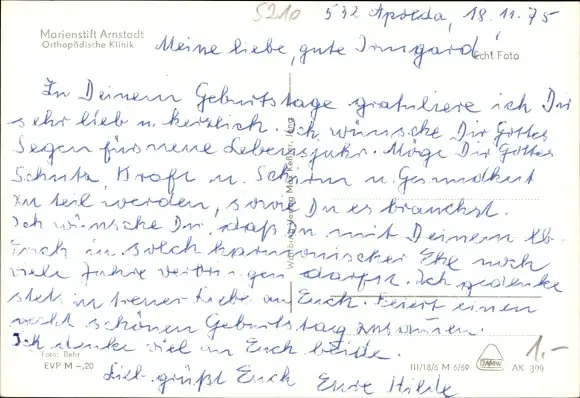 5210
532 Apolda, 18.11.75
Marienstift Arnstadt
Orthopädische Klinik
Meine liebe, gute Irmgard!
Echt Foto
Zu Deinem Geburtstage gratuliere ich Dir
sehr lieb u. herzlich. Ich wünsche Dir Gottes
Segen für's neue Lebensjahr. Möge Dir Gottes
Schutz, Kraft u. Schirm u. Gesundheit
zu teil werden, sowie Du es brauchst.
Ich wünsche Dir, daß Du mit Deinem lb.
in solch harmonischer Ehe noch
viele Jahre verbringen darfst. Ich gedenke
stets in treuer Liebe an Euch. Feiert einen
recht schönen Geburtstag zusammen.
Ich denke viel an Euch beide.
Lieb grüßt Euch Eure Hilde
Foto: Behr
EVP M –,20
III/18/6 M 6/69
AK 399
1.-